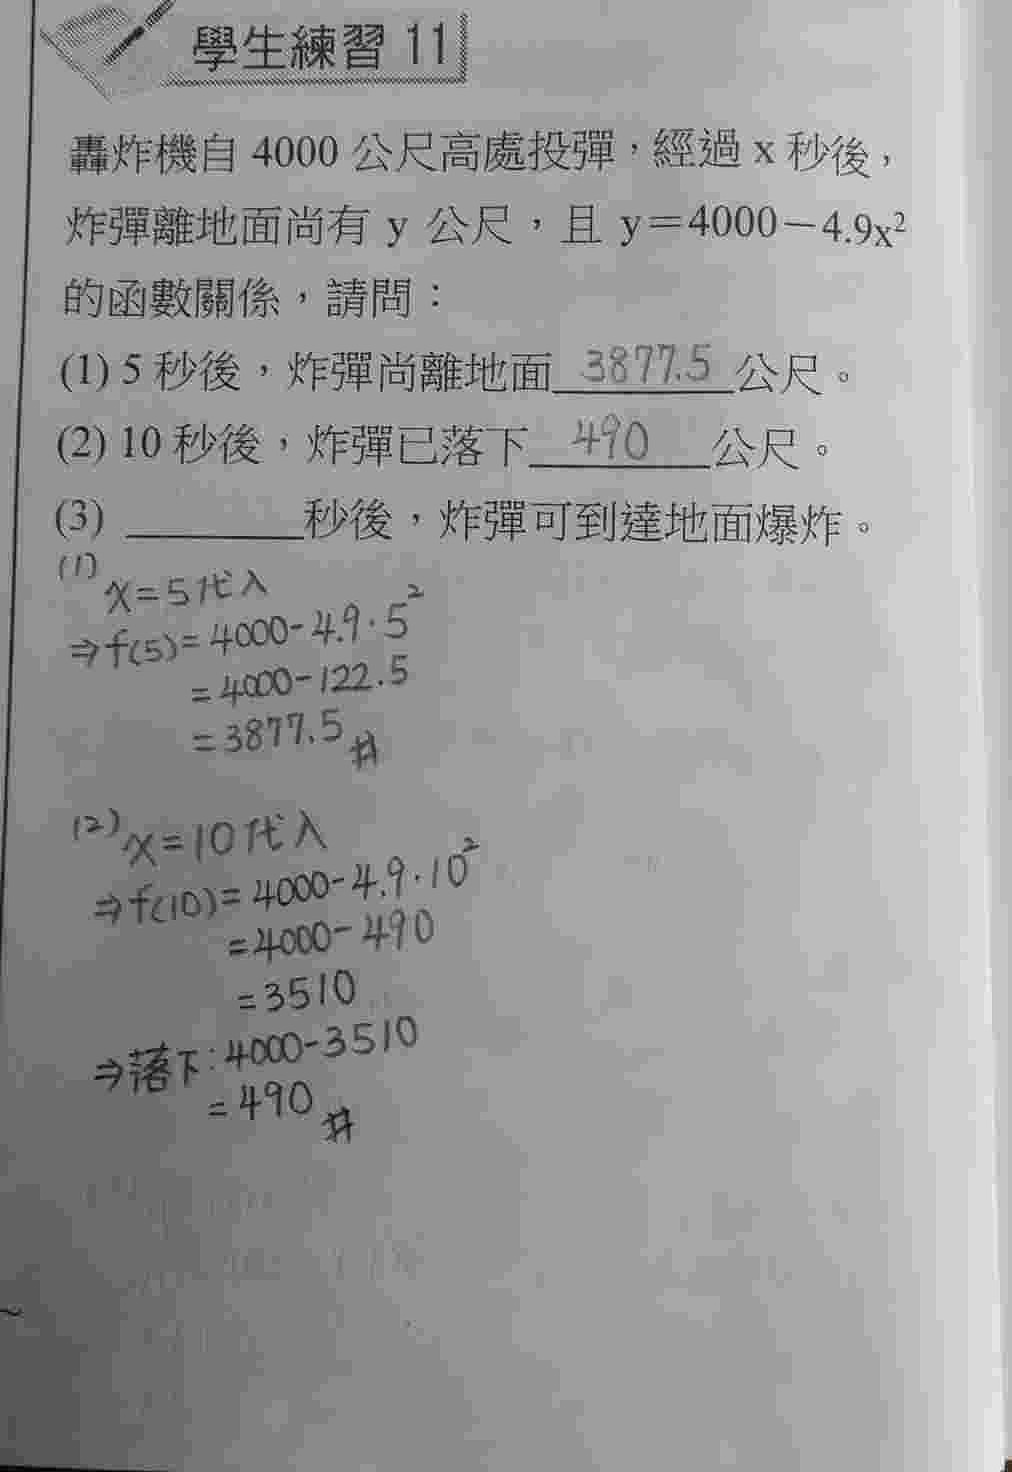 學生練習 11
轟炸機自 4000 公尺高處投彈，經過 x 秒後，
炸彈離地面尚有 y 公尺，且 y＝4000－4.9x²
的函數關係，請問：
(1) 5 秒後，炸彈尚離地面 3877.5 公尺。
(2) 10 秒後，炸彈已落下 490 公尺。
(3) ______秒後，炸彈可到達地面爆炸。
(1)
x=5代入
⇒f(5)=4000-4.9·5²
=4000-122.5
=3877.5 #
(2) x=10代入
⇒f(10)=4000-4.9·10²
=4000-490
=3510
⇒落下:4000-3510
=490 #